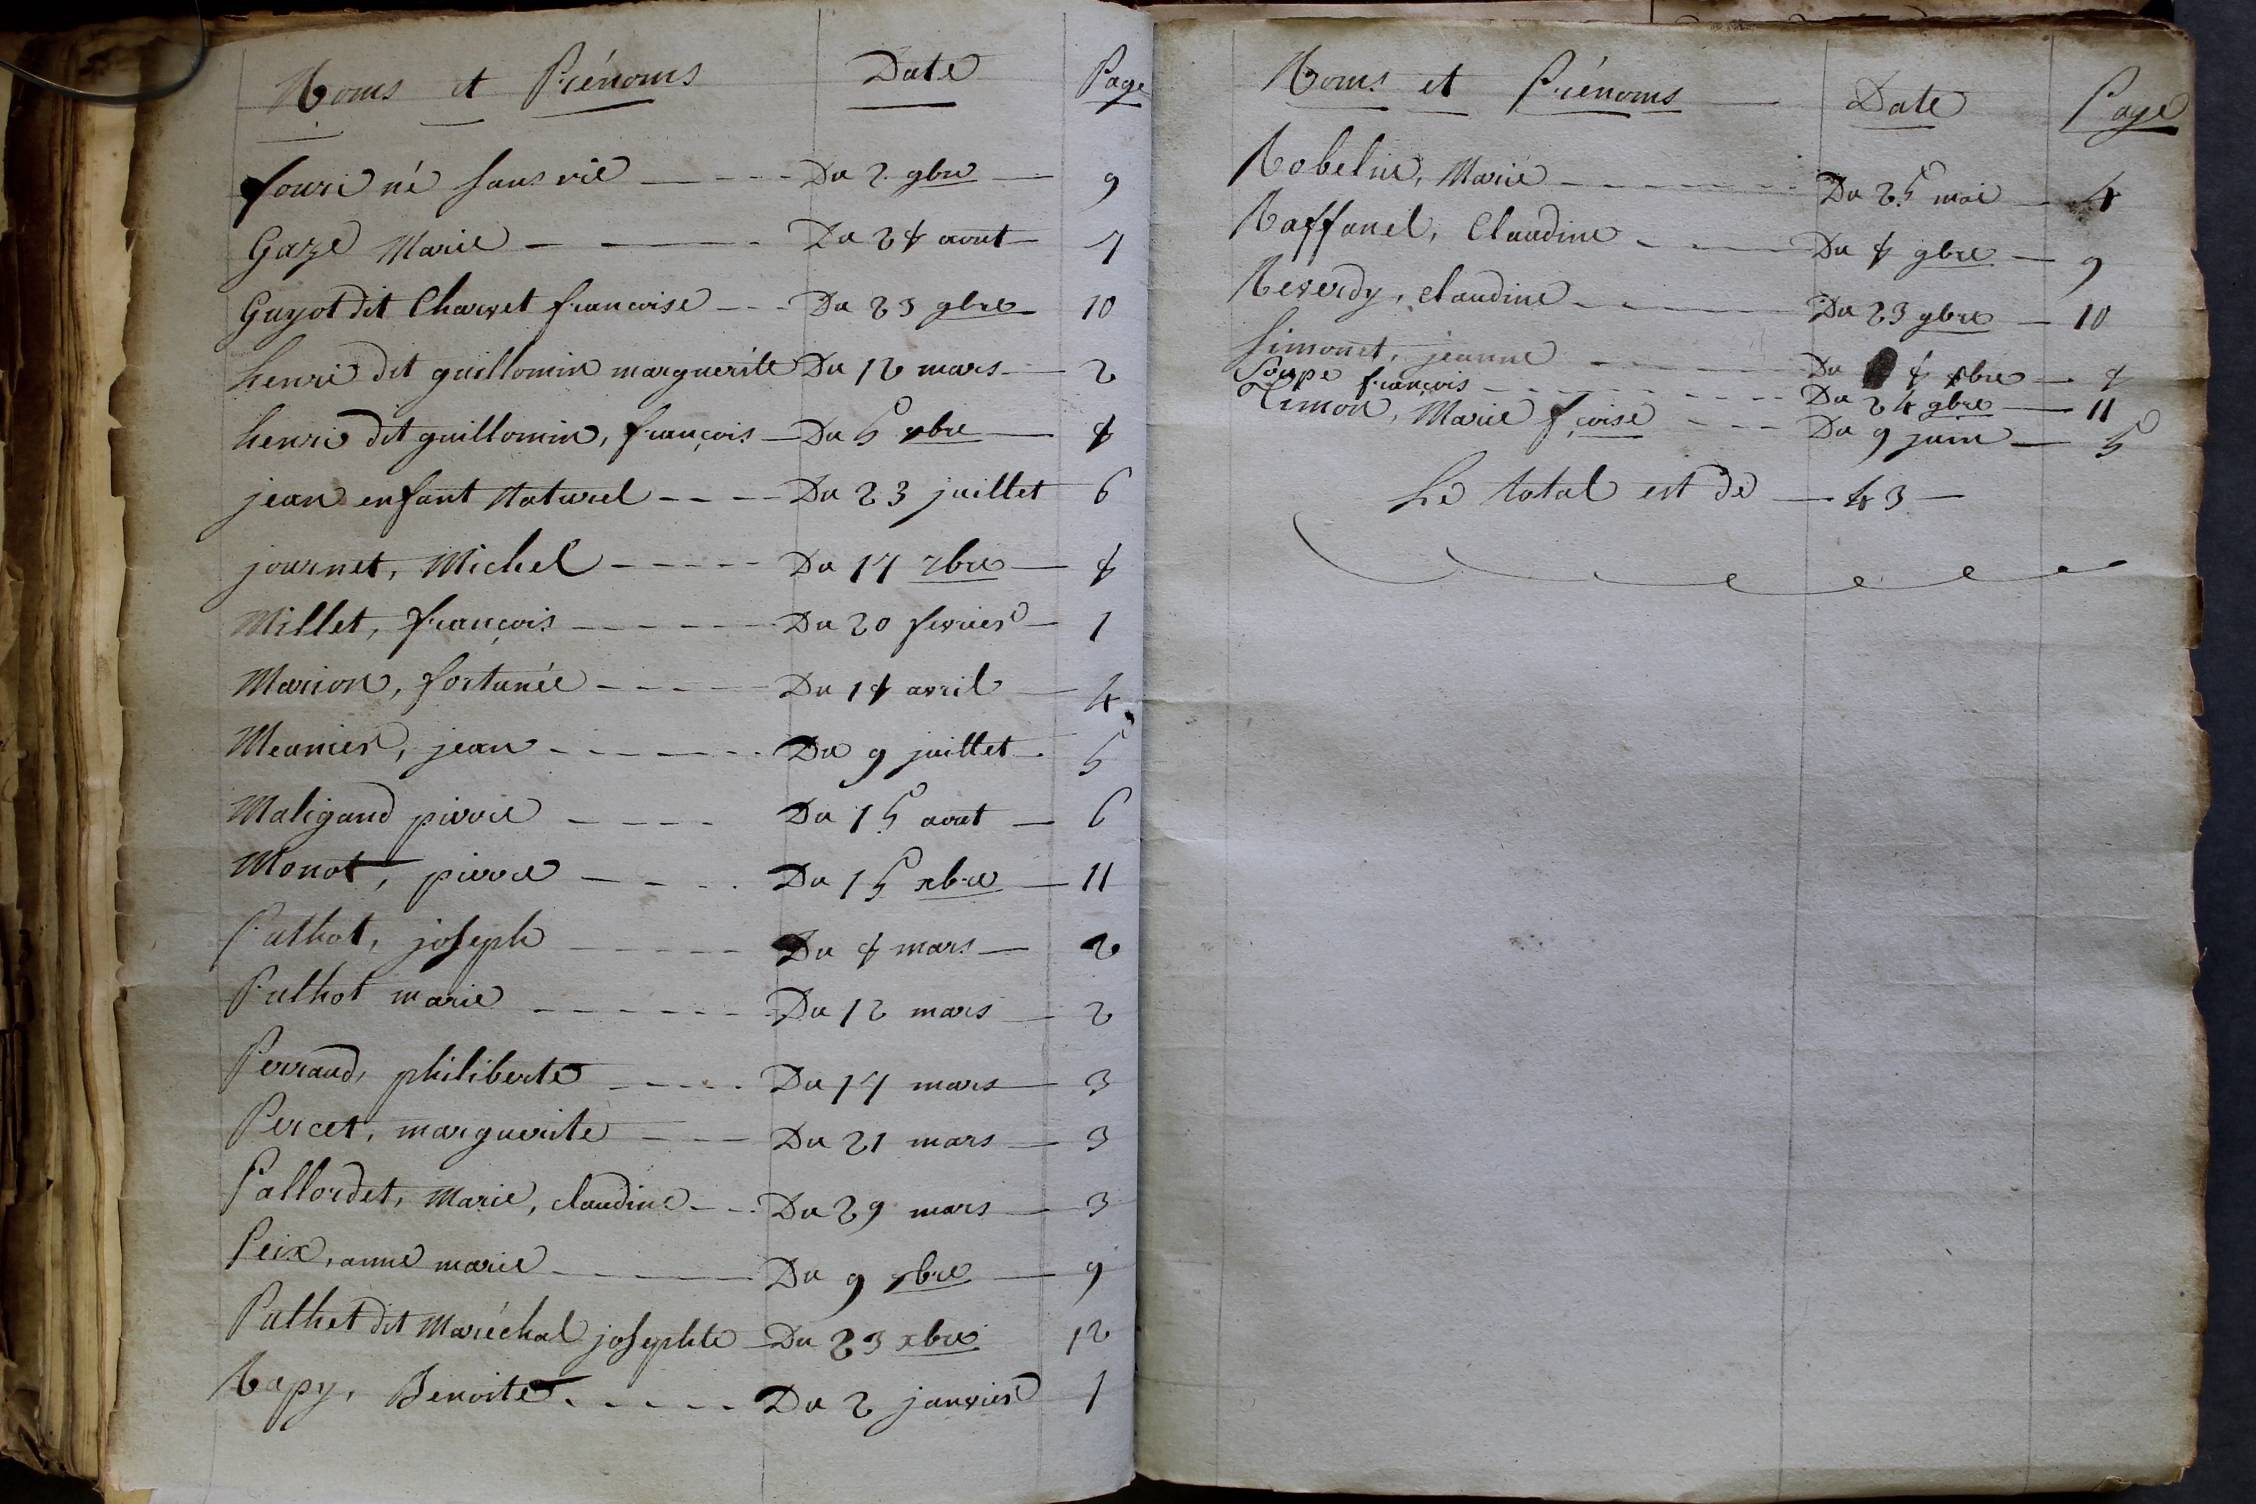 Noms et Prénoms Date Page
fouri né sans vie Du 2 9bre 9
Gaze Marie Du 28 aout 7
Guyot dit Charvet francoise Du 23 9bre 10
henri dit guillomin marguerite Du 12 mars 2
henri dit guillomin, françois Du 5 8bre 8
jean enfant Naturel Du 23 juillet 6
journet, Michel Du 17 7bre 8
Millet, françois Du 20 fevrier 1
Marion, fortunée Du 18 avril 4
Meunier, jean Du 9 juillet 5
Maligand pierre Du 15 aout 6
Monot, pierre Du 15 xbre 11
Puthot, joseph Du 8 mars 2
Puthot marie Du 12 mars 2
Perraud, philiberte Du 17 mars 3
Percet, marguerite Du 21 mars 3
Pallordet, Marie, claudine Du 29 mars 3
Peix, anne marie Du 9 8bre 9
Puthet dit Maréchal josephte Du 23 xbre 12
Rapy, Benoite Du 2 janvier 1
Noms et Prénoms Date Page
Robelin, Marie Du 25 mai 4
Raffanel, Claudine Du 8 9bre 9
Reverdy, claudine Du 23 9bre 10
Simonet, jeanne Du 8 8bre 8
Soupe françois Du 24 9bre 11
Timon, Marie fçoise Du 9 juin 5
Le total est de 43